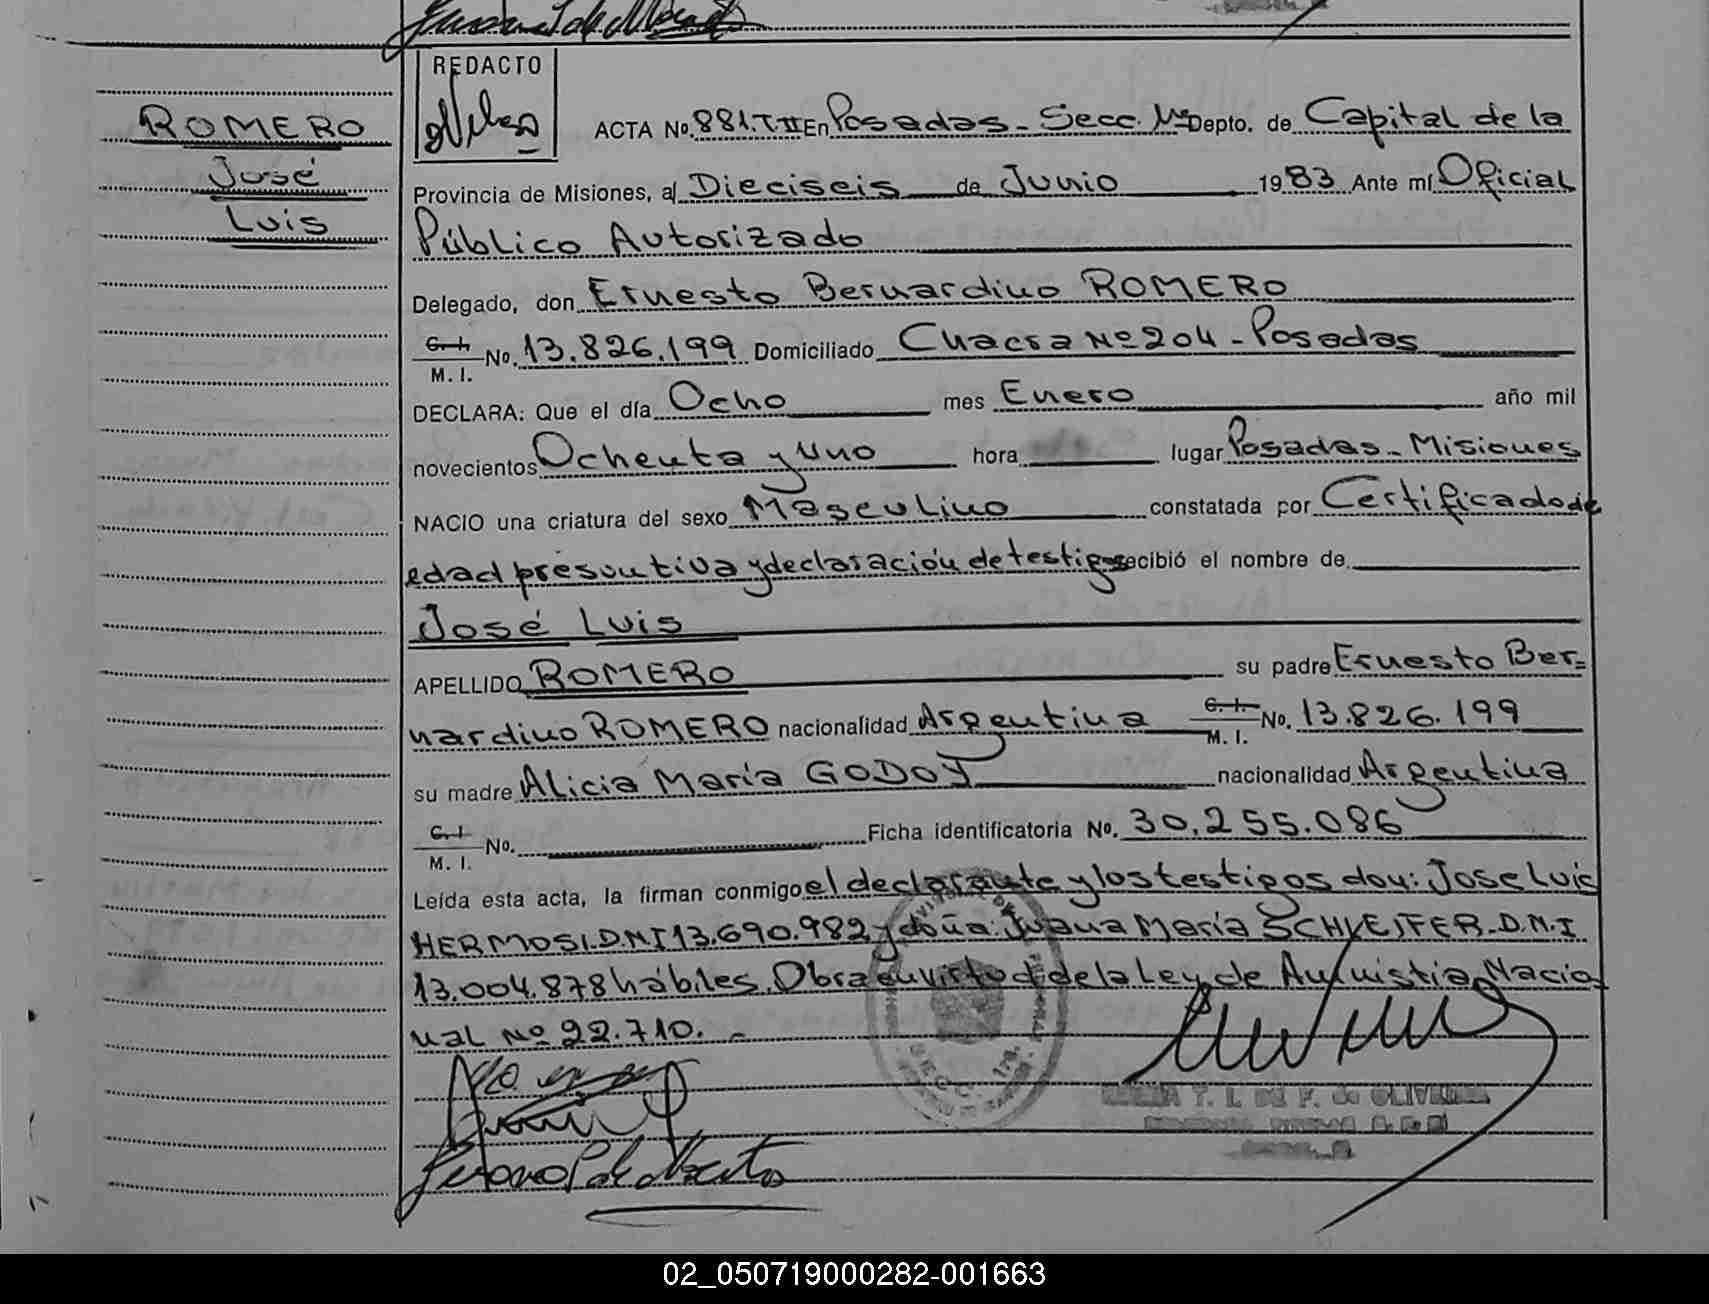 REDACTO
ROMERO
José
Luis
ACTA No. 881.T.II En Posadas - Secc. Depto. de Capital de la
Provincia de Misiones, al Dieciseis de Junio 1983 Ante mí Oficial
Público Autorizado
Delegado, don Ernesto Bernardino ROMERO
C. I.
M. I. No. 13.826.199 Domiciliado Chacra Nº 204 - Posadas
DECLARA: Que el día Ocho mes Enero año mil
novecientos Ochenta y Uno hora lugar Posadas - Misiones
NACIO una criatura del sexo Masculino constatada por Certificado de
edad presuntiva y declaración de testigos recibió el nombre de
José Luis
APELLIDO ROMERO su padre Ernesto Ber=
nardino ROMERO nacionalidad Argentina C. I. M. I. No. 13.826.199
su madre Alicia María GODOY nacionalidad Argentina
C. I
M. I. No. Ficha identificatoria No. 30.255.086
Leída esta acta, la firman conmigo el declarante y los testigos don: Jose Luis
HERMOSI. D.N.I 13.690.982 y doña: Juana María SCHLEIFER. D.N.I
13.004.878 hábiles. Obra en virtud de la Ley de Amnistia Nacio
nal Nº 22.710. -
T. L. DE F. de OLIVEIRA
02_050719000282-001663